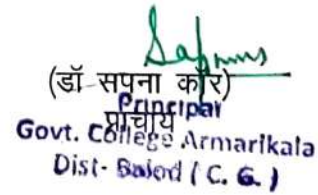 Sapnus
(डॉ सपना कौर)
प्राचार्य
Principal
Govt. College Armarikala
Dist- Balod ( C. G. )